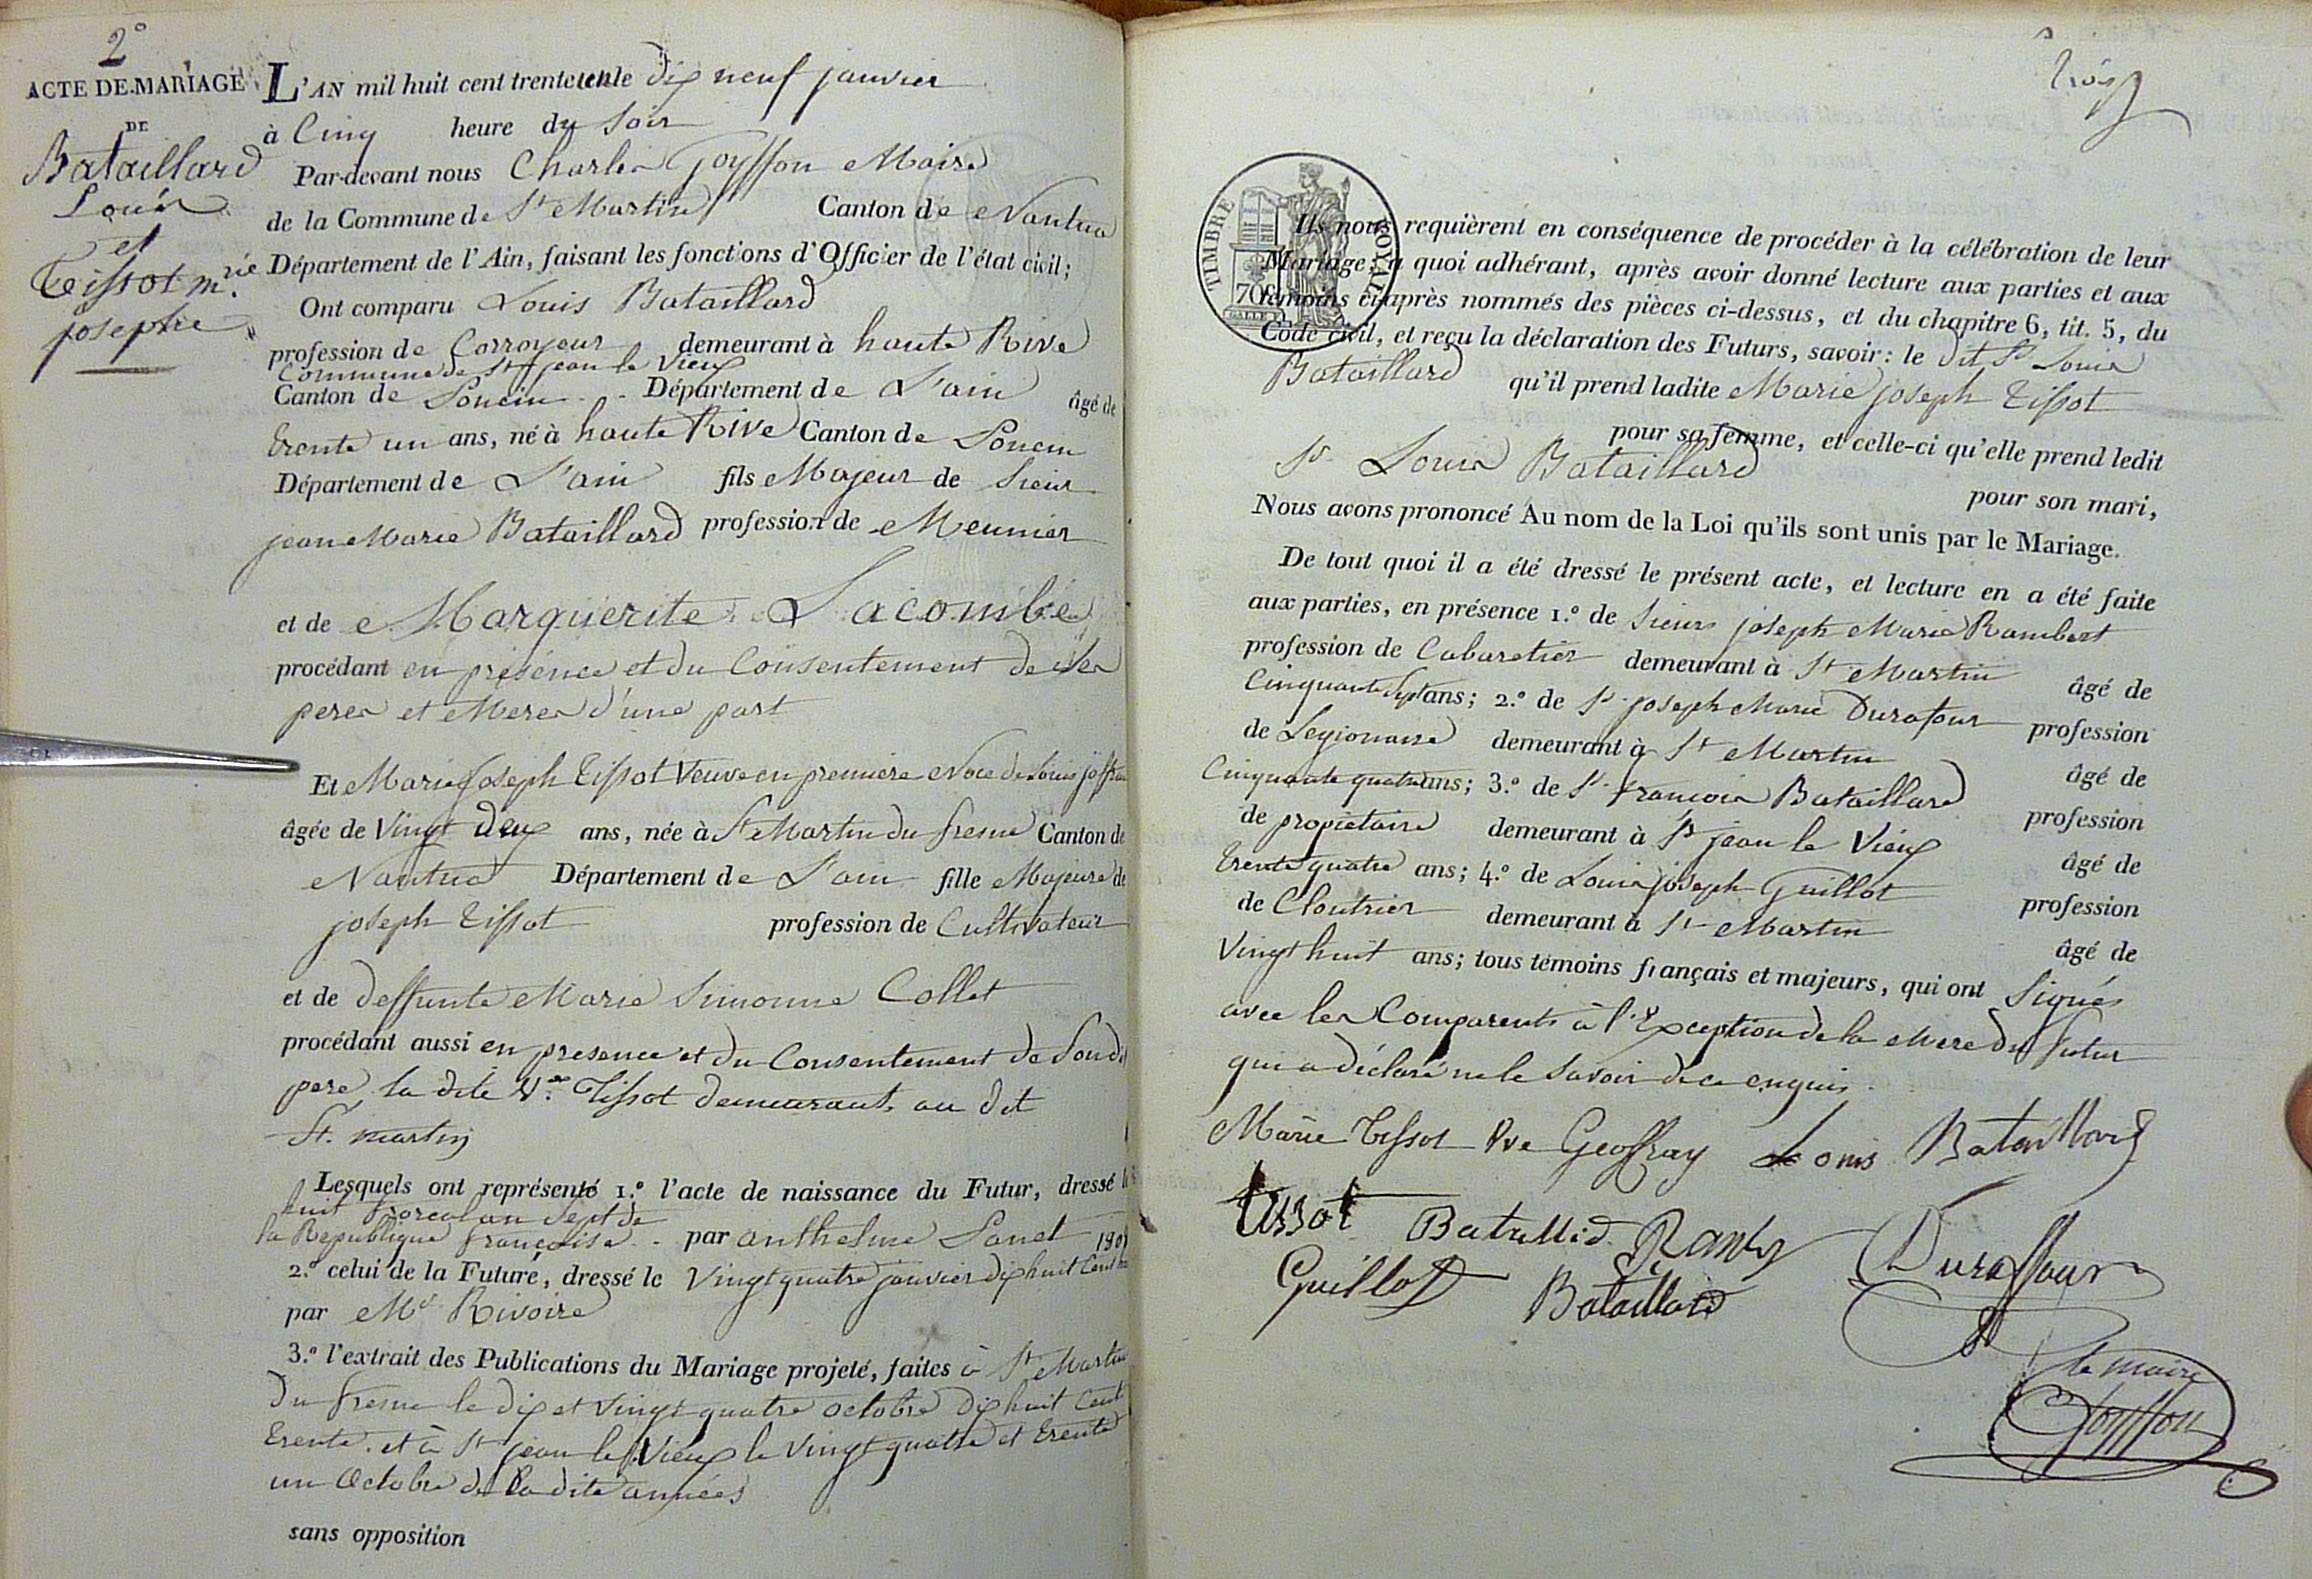 2°
ACTE DE MARIAGE
DE
Bataillard
Louis
et
Tissot m.rie
josephe
L'AN mil huit cent trente le dix neuf janvier
à Cinq heure du Soir
Par-devant nous Charles Goyffon Maire
de la Commune de St Martin Canton de Nantua
Département de l'Ain, faisant les fonctions d'Officier de l'état civil;
Ont comparu Louis Bataillard
profession de Corroyeur demeurant à haute Rive
Commune de St jean le Vieux
Canton de Poncin Département de L'ain âgé de
trente un ans, né à haute Rive Canton de Poncin
Département de L'ain fils Majeur de Sieur
jean Marie Bataillard profession de Meunier
et de Marguerite Lacombe
procédant en présence et du Consentement de Ses
peres et Meres d'une part
Et Marie Joseph Tissot Veuve en premiere Noce de Louis
âgée de Vingt deux ans, née à St Martin du fresne Canton de
Nantua Département de L'ain fille Majeure de
joseph Tissot profession de Cultivateur
et de deffunte Marie Simonne Collet
procédant aussi en presence et du Consentement de Son dt
pere la dite Ve. Tissot demeurant au dit
St. martin
Lesquels ont représenté 1.° l'acte de naissance du Futur, dressé le
huit floreal an Sept de
la Republique françoise par anthelme
2.° celui de la Future, dressé le Vingt quatre janvier dix huit Cent
par Mr Rivoire
3.° l'extrait des Publications du Mariage projeté, faites à St Martin
du fresne le dix et Vingt quatre octobre dix huit Cent
trente. et à St jean le Vieux le Vingt quatre et trente
un Octobre de la dite années
sans opposition
TIMBRE ROYAL
70
Ils nous requièrent en conséquence de procéder à la célébration de leur
Mariage; a quoi adhérant, après avoir donné lecture aux parties et aux
témoins ci-après nommés des pièces ci-dessus, et du chapitre 6, tit. 5, du
Code civil, et reçu la déclaration des Futurs, savoir: le dit Sr Louis
Bataillard qu'il prend ladite Marie joseph Tissot
pour sa femme, et celle-ci qu'elle prend ledit
Sr Louis Bataillard pour son mari,
Nous avons prononcé Au nom de la Loi qu'ils sont unis par le Mariage.
De tout quoi il a été dressé le présent acte, et lecture en a été faite
aux parties, en présence 1.° de Sieurs joseph Marie Rambert
profession de Cabaretier demeurant à St Martin âgé de
Cinquante Sept ans; 2.° de Sr joseph Marie Durafour profession
de Legionaire demeurant à St Martin âgé de
Cinquante quatre ans; 3.° de Sr francois Bataillard profession
de propietaire demeurant à St jean le Vieux âgé de
trente quatre ans; 4.° de Louis joseph Guillot profession
de Cloutrier demeurant à St Martin âgé de
Vingt huit ans; tous témoins français et majeurs, qui ont Signés
avec les Comparents à l'Exception de la Mere du futur
qui a déclaré ne le Savoir de ce enquis.
Marie Tissot Vve Geoffray Louis Bataillard
tissot Duraffour
Guillot Bataillard
le maire
Goyffon